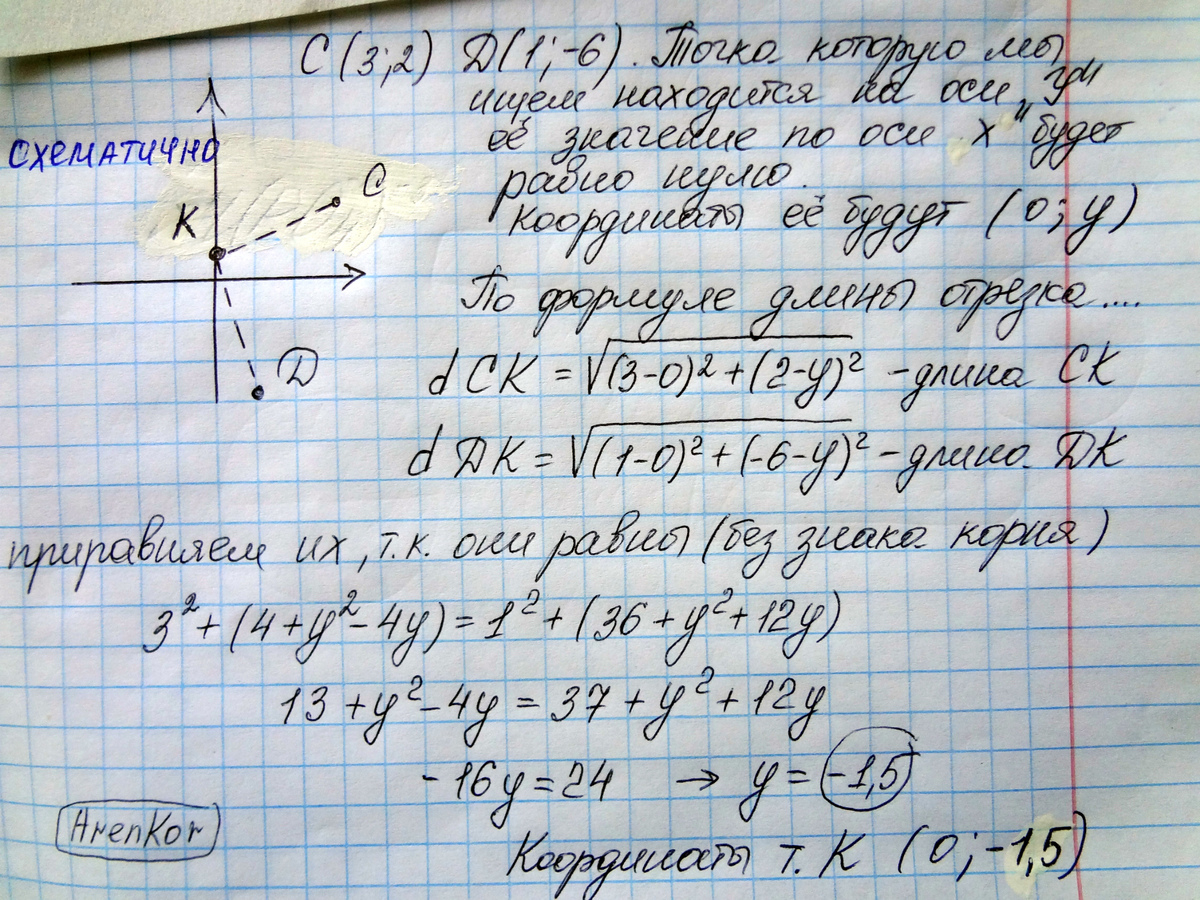 C (3;2) D(1;-6). Точка которую мы
ищем находится на оси „y"
её значение по оси „x" будет
равно нулю.
координаты её будут (0; y)
схематично
C
K
D
По формуле длины отрезка....
d CK = √(3-0)² + (2-y)² - длина CK
d DK = √(1-0)² + (-6-y)² - длина DK
приравняем их, т.к. они равны (без знака корня)
3² + (4 + y² - 4y) = 1² + (36 + y² + 12y)
13 + y² - 4y = 37 + y² + 12y
-16y = 24 → y = -1,5
ArenKor
Координаты т. K (0; -1,5)